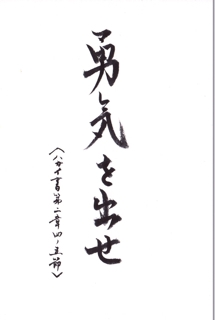 勇気を出せ
〈ハガイ書第二章四、五節〉